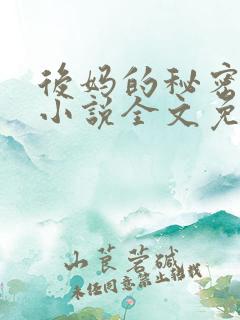 後妈的秘密
小说全文免
山茛菪碱
未经同意禁止转载